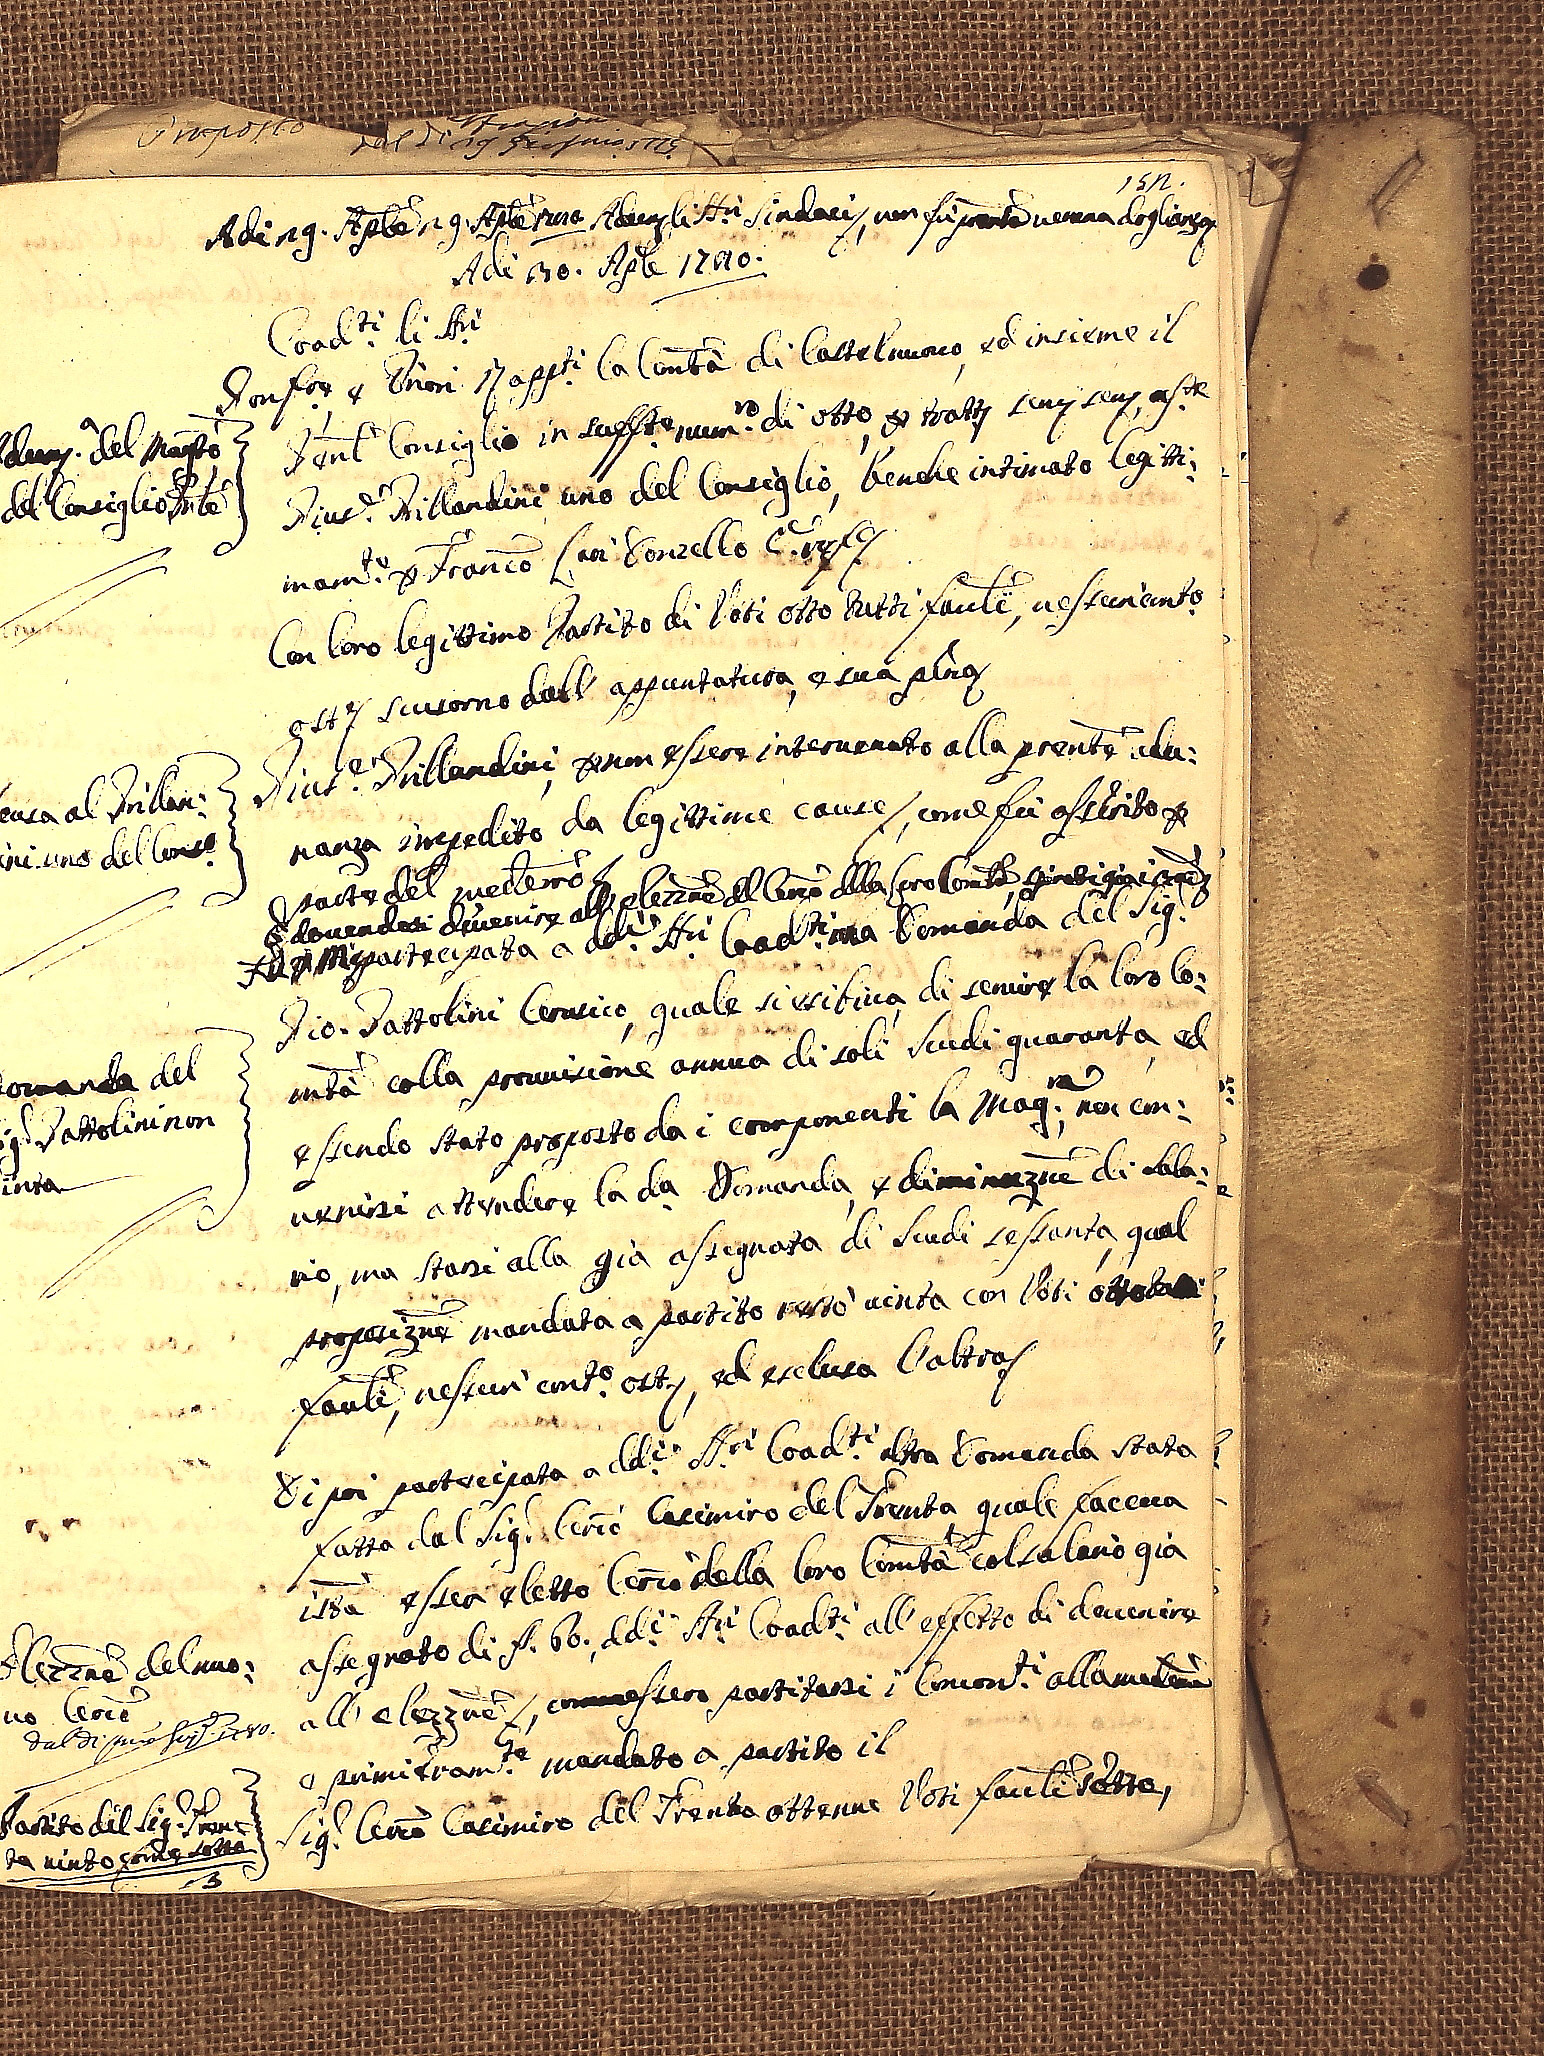 Imposto dal di
152.
Adi 29. Aple 29. Aple 1710 Adunq. li SSri Sindaci, non fù presente nessuno degli
Adi 30. Aple 1710.
Coadti. li SSri
Gonfre, e Priori rappti. la Comtà di Castelnuovo, ed insieme il
Genle Consiglio in suffte numro. di otto, e
Giuse. Brillandini uno del Consiglio, benche intimato legitti:
mamte. p Franco Donzello
Con loro legittimo Partito di Voti otto tutti faulì, nessun conto
ostte scusorno dall' appuntatura, e sua pena
Giuse. Brillandini, p non essere intervenuto alla prente adu:
nanza impedito da legittime cause, come fù asserito p
parte del medemo
E dovendosi devenire all' elezzne del Cerco della loro Comtà,
Fù partecipata a ddi. SSri Coadti. una Domanda del Sigr
Gio. Battolini Cerusico, quale si esibiva di servire la loro Co:
mtà colla provvisione annua di soli Scudi quaranta, ed
essendo stato proposto da i componenti la Magra. non con:
venirsi attendere la da Domanda, e diminuzne di sala:
rio, ma starsi alla già assegnata di Scudi sessanta, qual
proposizne mandata a partito restò vinta con Voti otto tutti
faulì, nessun conto. ostte, ed esclusa l'altra
Di poi partecipata a ddi. SSri Coadti. altra Domanda stata
fatta dal Sigr Cerco Casimiro del Trenta, quale faceva
istà esser eletto Cerco della loro Comtà col salario già
assegnato di s. 60., ddi. SSri Coadti. all' effetto di devenire
all' elezzne, commessero partitarsi i Concorti. alla medema
e primieramte. mandato a partito il
Sigr Cerco Casimiro del Trenta ottenne Voti faulì sette,
Adunza. del Magto
del Consiglio Genle
scusa al Brillan:
dini uno del Conso
Domanda del
Sigr Battolini non
vinta
Elezzne del nuo:
vo Cerco
Partito del Sigr Tren
ta vinto come sotto